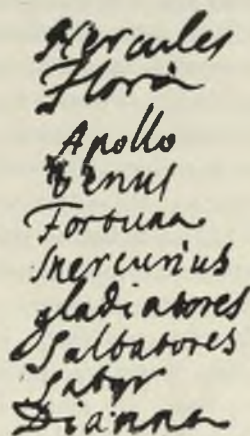 Hercules
Flora
Apollo
Venus
Fortuna
Mercurius
gladiatores
Saltatores
Satyr
Dianna